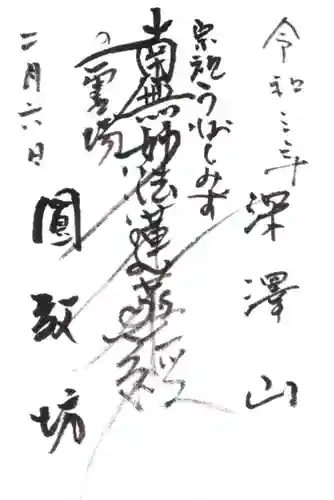 令和三年
深澤山
宗祖うぶしみず
南無妙法蓮華経
の霊場
二月六日
圓教坊